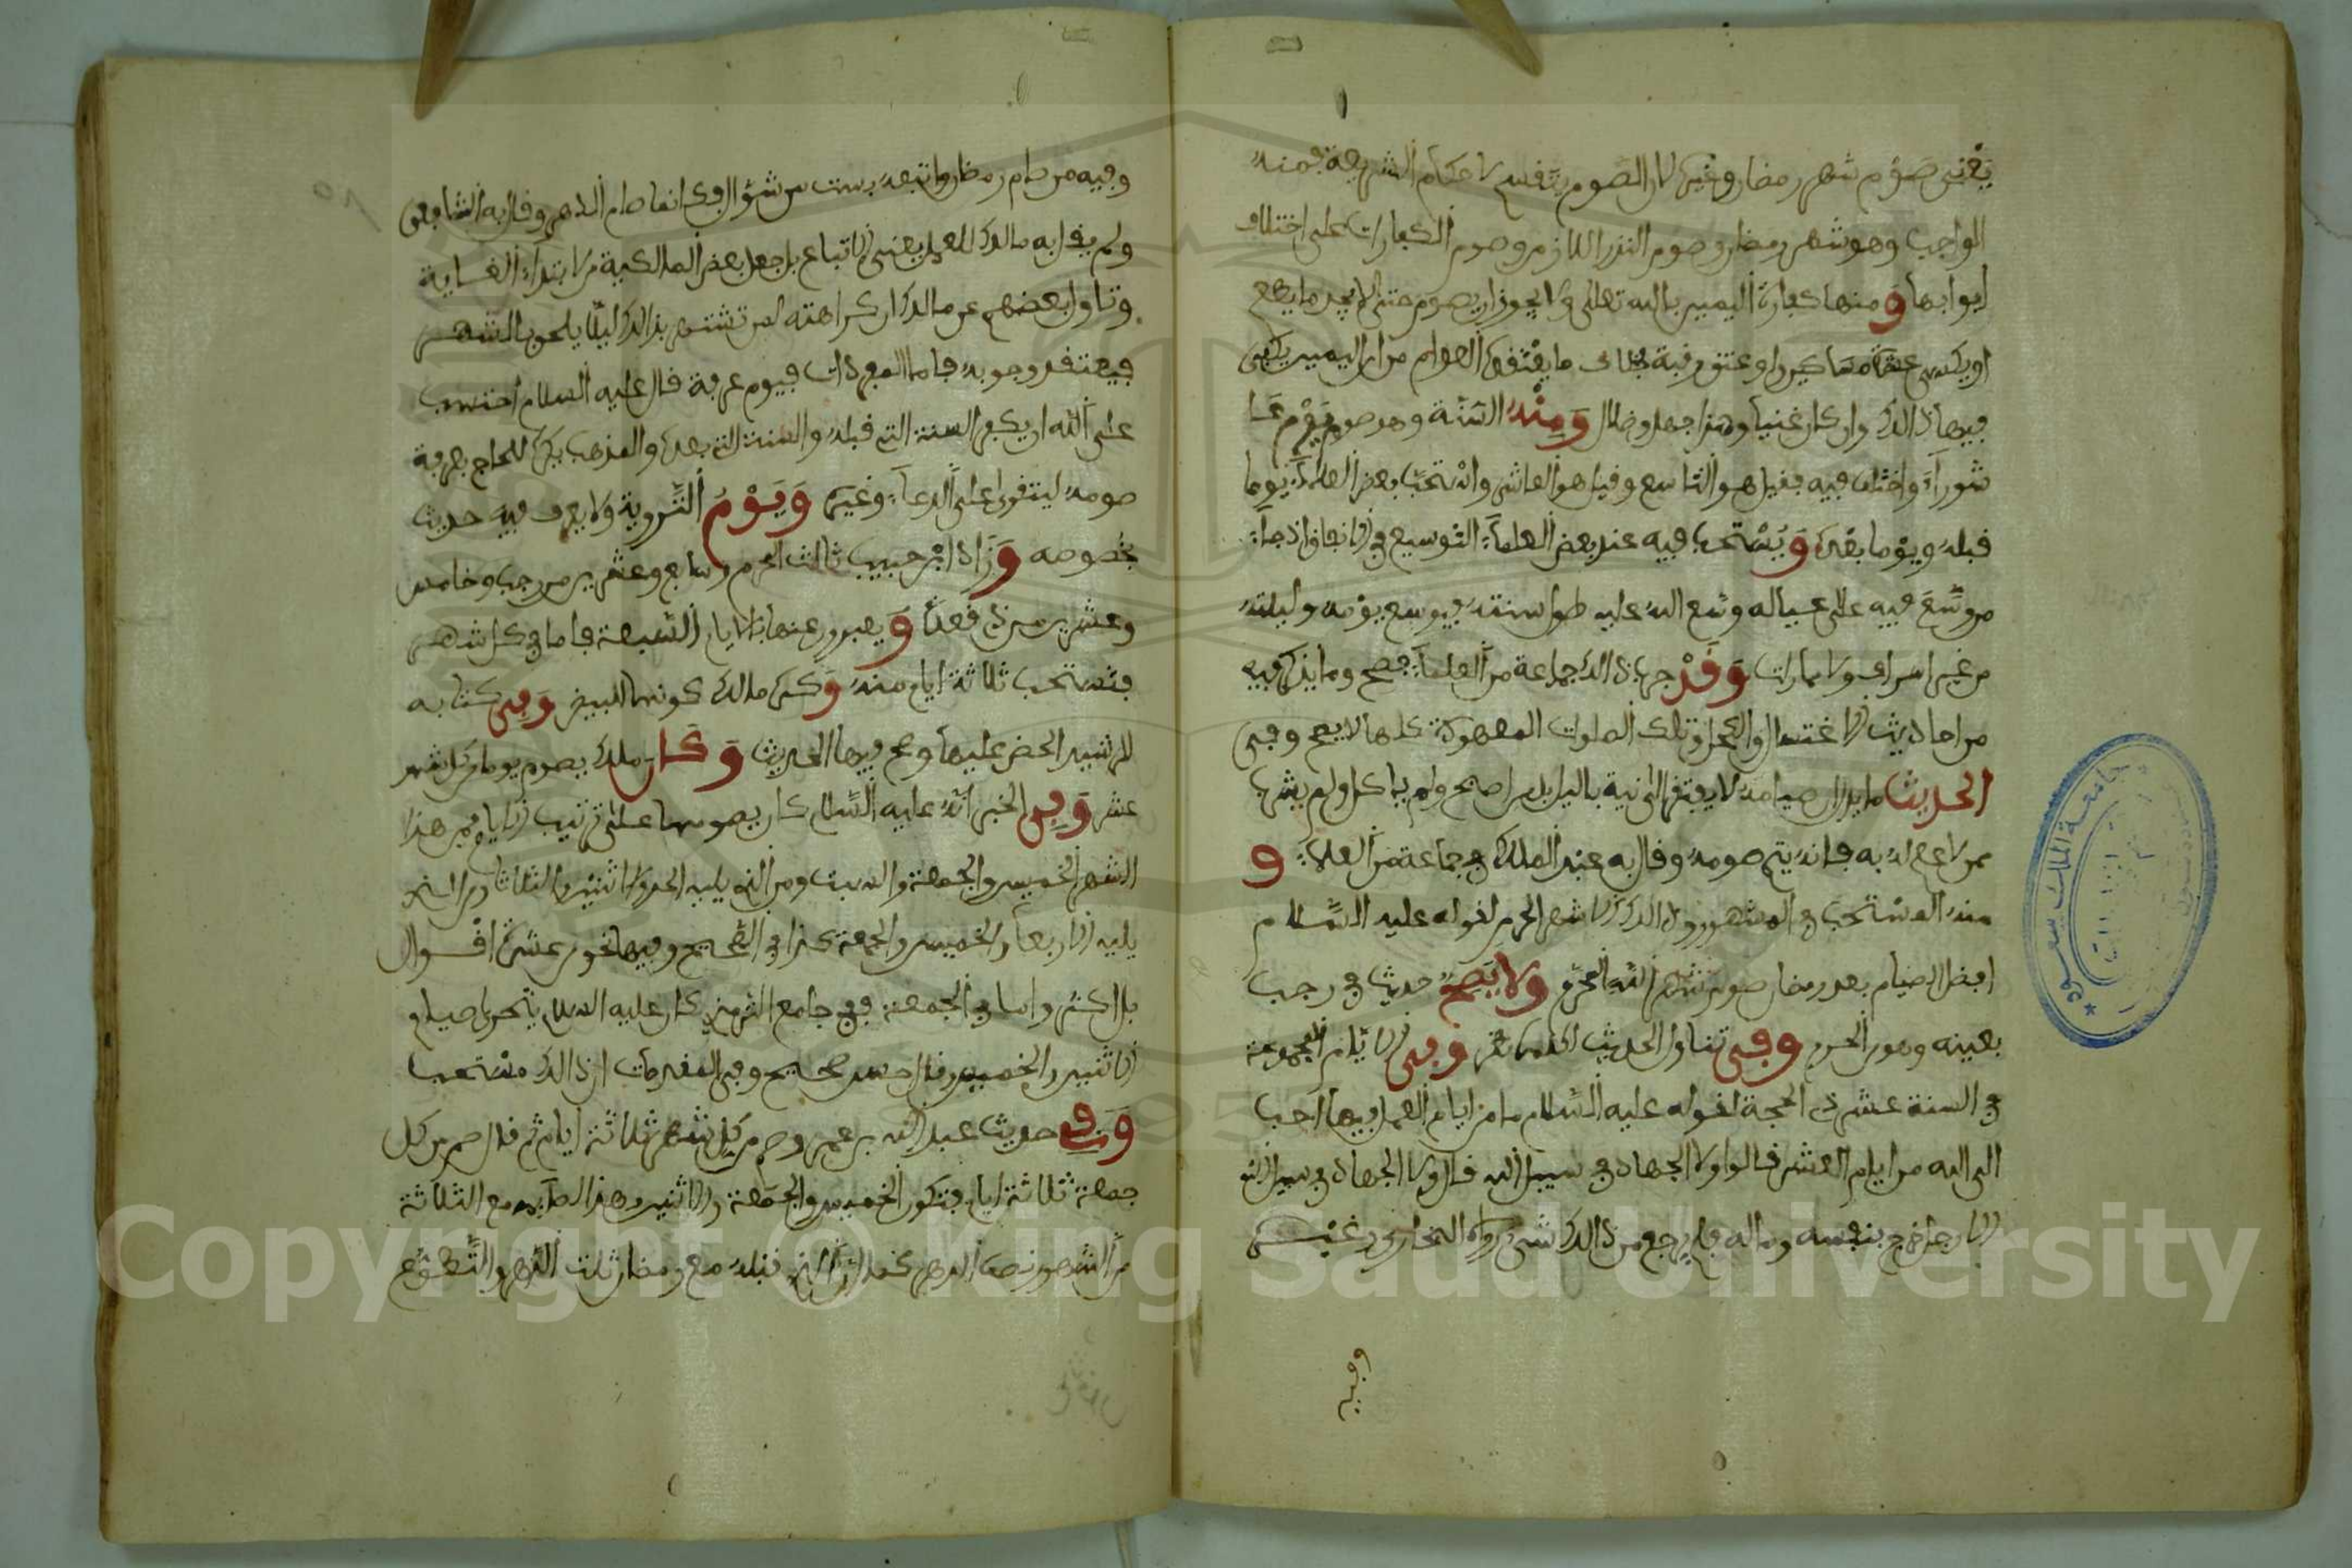 يعني صوم شهر رمضان وغيره لان الصوم ينقسم لاحكام الشريعة فمنه
الواجب وهو شهر رمضان وصوم النذر اللازم وصوم الكفارات على اختلاف
ابوابها ومنها كفارة اليمين بالله تعالى ولا يجوز ان يصوم حتى لا يجد ما يطعم
او يكسي عشرة مساكين او عتق رقبة خلاف ما يعتقده العوام من ان اليمين يكفي
فيها ذالك وان كان غنيا وهذا جهل وضلال ومنه السنة وهو صوم يوم عا
شوراء واختلف فيه فقيل هو التاسع وقيل هو العاشر واستحب بعض العلماء يوما
قبله ويوما بعده ويستحب فيه عند بعض العلماء التوسيع في الانفاق اذ جاء
من وسع فيه على عياله وسع الله عليه طول سنته فيوسع يومه وليلته
من غير اسراف ولا مماراة وقد جرب ذالك جماعة من العلماء فصح وما يذكر فيه
من احاديث الاغتسال والكحل وتلك الصلوات المعهودة كلها لا يصح وفي
الحديث ما يدل ان صيامه لا يفتقر الى نية بالليل بل من اصبح ولم ياكل ولم يشرب
ممن لا علم له به فانه يتم صومه وقال به عبد الملك في جماعة من العلماء و
منه المستحب في المشهور وذالك الاشهر الحرم لقوله عليه السلام
افضل الصيام بعد رمضان صوم شهر الله المحرم ولا يصح حديث في رجب
بعينه وهو من الحرم وفي تناول الحديث له نظر وفي الايام المجموعة
في السنة عشر ذي الحجة لقوله عليه السلام ما من ايام العمل فيها احب
الى الله من ايام العشر قالوا ولا الجهاد في سبيل الله قال ولا الجهاد في سبيل الله
الا رجل خرج بنفسه وماله فلم يرجع من ذالك بشيء رواه البخاري وغيره
وفيه
وفيه من صام رمضان واتبعه بست من شوال فكانما صام الدهر وقال به الشافعي
ولم يقل به مالك للعمل يعني الاتباع بل جعل بعض المالكية من لابتداء الغاية
وتاول بعضهم عن مالك ان كراهته لمن تشتهر بذالك ليلا يلحق بالشهر
فيعتقد وجوبه فاما المعجرات فيوم عرفة قال عليه السلام احتسب
على الله ان يكفر السنة التي قبله والسنة التي بعده والمذهب يكره للحاج بعرفة
صومه ليتقوى على الدعاء وغيره ويوم التروية ولا يعرف فيه حديث
بخصوصه وزاد ابن حبيب ثالث المحرم وسابع وعشرين من رجب وخامس
وعشرين من ذي قعدة ويعبرون عنها بالايام السبعة فاما في كل شهر
فتستحب ثلاثة ايام منه وكره مالك كونها البيض وفي كتابه
للرشيد الحض عليها وصح فيها الحديث وكان مالك يصوم يوما من كل شهر
عشر وفي الخبر انه عليه السلام كان يصومها على ترتيب الايام فمن هذا
الشهر الخميس والجمعة والسبت ومن الذي يليه الاحد والاثنين والثلاثا ومن الذي
يليه الاربعا والخميس والجمعة كذا في الصحيح وفيها نحو من عشرة اقوال
بل اكثر واما في الجمعة ففي جامع الترمذي كان عليه السلام يتحرى صيام
الاثنين والخميس وقال حسن صحيح وفي المقدمات ان ذالك مستحب
وفي حديث عبد الله بن عمر وصم من كل شهر ثلاثة ايام ثم قال صم من كل
جمعة ثلاثة ايام فتكون الخميس والجمعة والاثنين وهذا الصايم مع الثلاثة
من الشهور نصف الدهر كما ان الذي قبله مع رمضان ثلث الدهر والتطوع
جامعة الملك سعود
Copyright © King Saud University